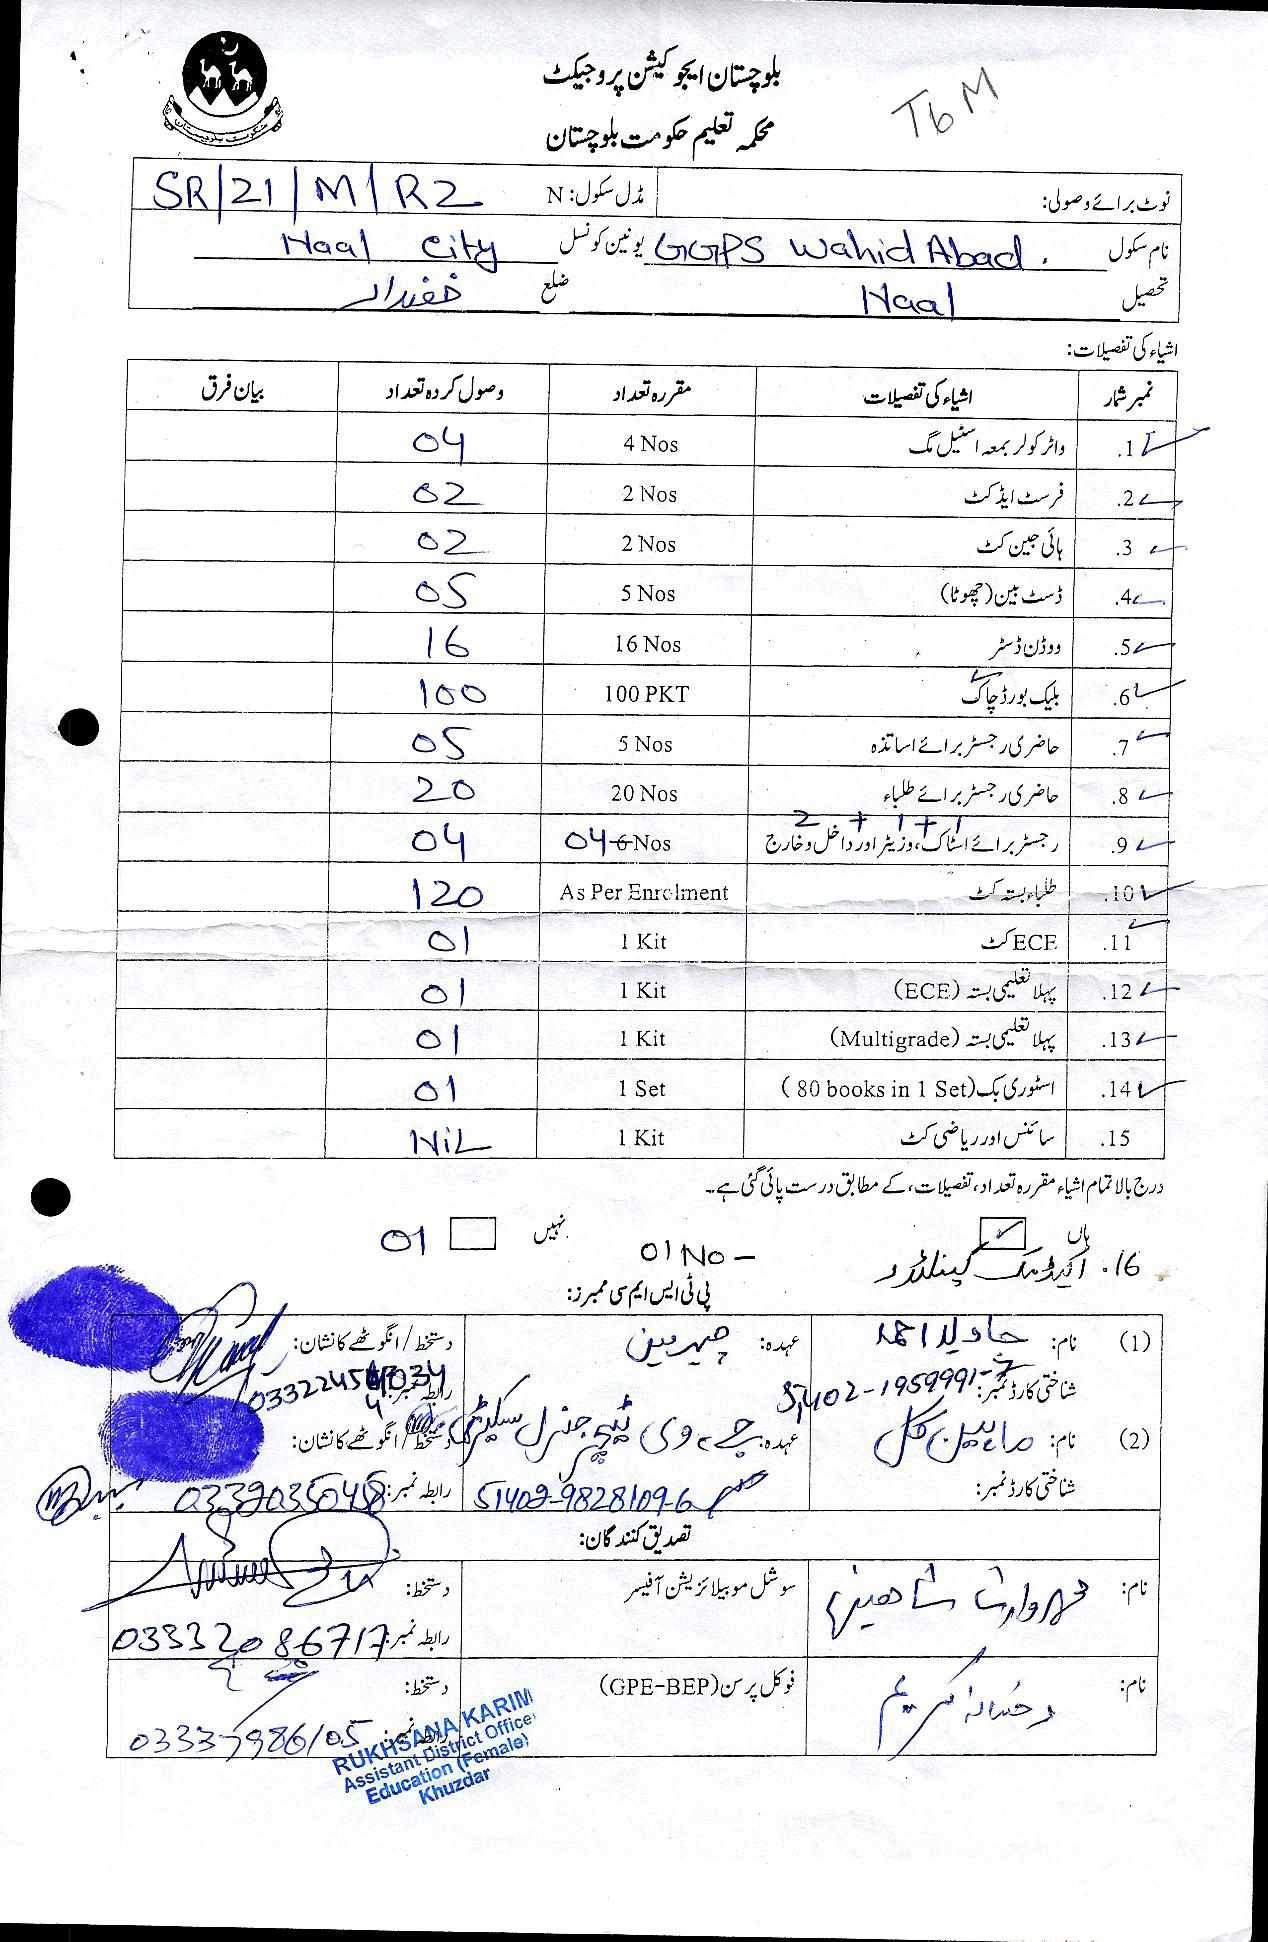 بلوچستان ایجوکیشن پروجیکٹ
TbM
محکمہ تعلیم حکومت بلوچستان
نوٹ برائے وصولی: مڈل سکول: N SR/21/M/R2
نام سکول GGPS Wahid Abad. یونین کونسل Naal City
تحصیل Naal ضلع خضدار
اشیاء کی تفصیلات:
نمبر شمار اشیاء کی تفصیلات مقررہ تعداد وصول کردہ تعداد بیان فرق
.1 واٹر کولر بمعہ اسٹیل مگ 4 Nos 04
.2 فرسٹ ایڈ کٹ 2 Nos 02
.3 ہائی جین کٹ 2 Nos 02
.4 ڈسٹ بین (چھوٹا) 5 Nos 05
.5 ووڈن ڈسٹر 16 Nos 16
.6 بلیک بورڈ چاک 100 PKT 100
.7 حاضری رجسٹر برائے اساتذہ 5 Nos 05
.8 حاضری رجسٹر برائے طلباء 20 Nos 20
2 + 1 + 1
.9 رجسٹر برائے اسٹاک، وزیٹر اور داخل و خارج 04 6 Nos 04
.10 طلباء بستہ کٹ As Per Enrolment 120
.11 ECE کٹ 1 Kit 01
.12 پہلا تعلیمی بستہ (ECE) 1 Kit 01
.13 پہلا تعلیمی بستہ (Multigrade) 1 Kit 01
.14 اسٹوری بک (80 books in 1 Set) 1 Set 01
.15 سائنس اور ریاضی کٹ 1 Kit NiL
درج بالا تمام اشیاء مقررہ تعداد، تفصیلات، کے مطابق درست پائی گئی ہے۔
ہاں نہیں 01
16. اکیڈمک کیلنڈر 01 No –
پی ٹی ایس ایم سی ممبرز:
(1) نام: جاوید احمد عہدہ: چیرمین دستخط / انگوٹھے کا نشان:
شناختی کارڈ نمبر: 51402-1959991-7 رابطہ نمبر:
(2) نام: ماہین گل عہدہ: جے وی ٹیچر جنرل سیکٹری دستخط / انگوٹھے کا نشان:
شناختی کارڈ نمبر: 51402-9828109-6 رابطہ نمبر:
تصدیق کنندگان:
نام: سوشل موبیلائزیشن آفیسر دستخط:
رابطہ نمبر:
نام: رخسانہ کریم فوکل پرسن (GPE-BEP) دستخط:
رابطہ نمبر:
RUKHSANA KARIM
Assistant District Officer
Education (Female)
Khuzdar